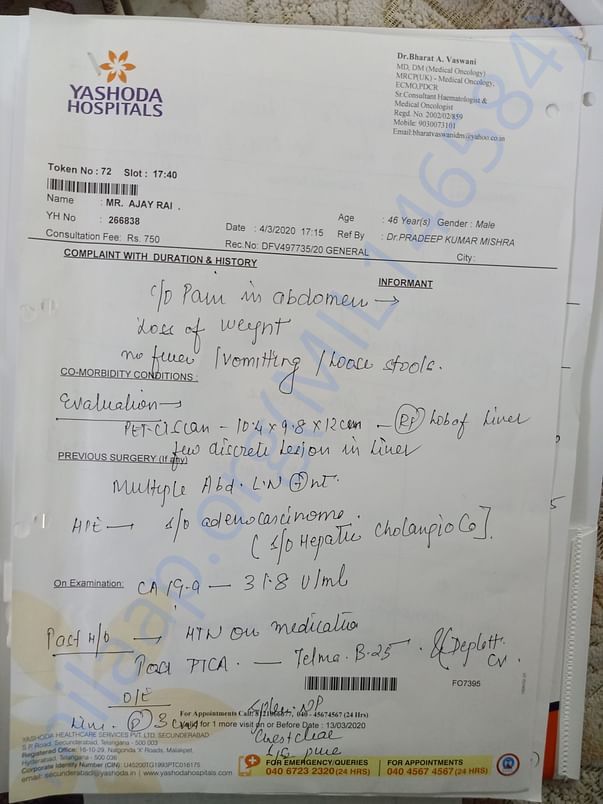 YASHODA
HOSPITALS
Dr.Bharat A. Vaswani
MD, DM (Medical Oncology)
MRCP(UK) - Medical Oncology,
ECMO,PDCR
Sr.Consultant Haematologist &
Medical Oncologist
Regd. No. 2002/02/859
Mobile: 9030073101
Email:bharatvaswanidm@yahoo.co.in
Token No : 72 Slot : 17:40
Name : MR. AJAY RAI .
YH No : 266838
Consultation Fee: Rs. 750
Age : 46 Year(s) Gender : Male
Date : 4/3/2020 17:15 Ref By : Dr.PRADEEP KUMAR MISHRA
Rec.No: DFV497735/20 GENERAL City:
COMPLAINT WITH DURATION & HISTORY
INFORMANT
c/o Pain in abdomen →
Loss of weight
no fever /vomitting / Loose stools.
CO-MORBIDITY CONDITIONS :
Evaluation →
PET-CT Scan - 10.4 x 9.8 x 12 cm - Rt Lob of Liver
few discrete lesion in Liver
PREVIOUS SURGERY (If any)
Multiple Abd. L.N + nt.
HPE → s/o adenocarcinoma.
( s/o Hepatic Cholangio Ca ].
On Examination: CA 19-9 — 31.8 U/ml
Past H/o → HTN on medication
Post PTCA. — Telma. B-25
CV
FO7395
O/E
3 cm
For Appointments Call: 8121066077, 040 - 45674567 (24 Hrs)
Valid for 1 more visit on or Before Date : 13/03/2020
Chest clear
YASHODA HEALTHCARE SERVICES PVT. LTD. SECUNDERABAD
S.P. Road, Secunderabad, Telangana - 500 003
Registered Office: 16-10-29, Nalgonda 'X' Roads, Malakpet,
Hyderabad, Telangana - 500 036
Corporate Identity Number (CIN): U45200TG1993PTC016175
email: secunderabad@yashoda.in | www.yashodahospitals.com
FOR EMERGENCY/QUERIES
040 6723 2320 (24 HRS)
FOR APPOINTMENTS
040 4567 4567 (24 HRS)